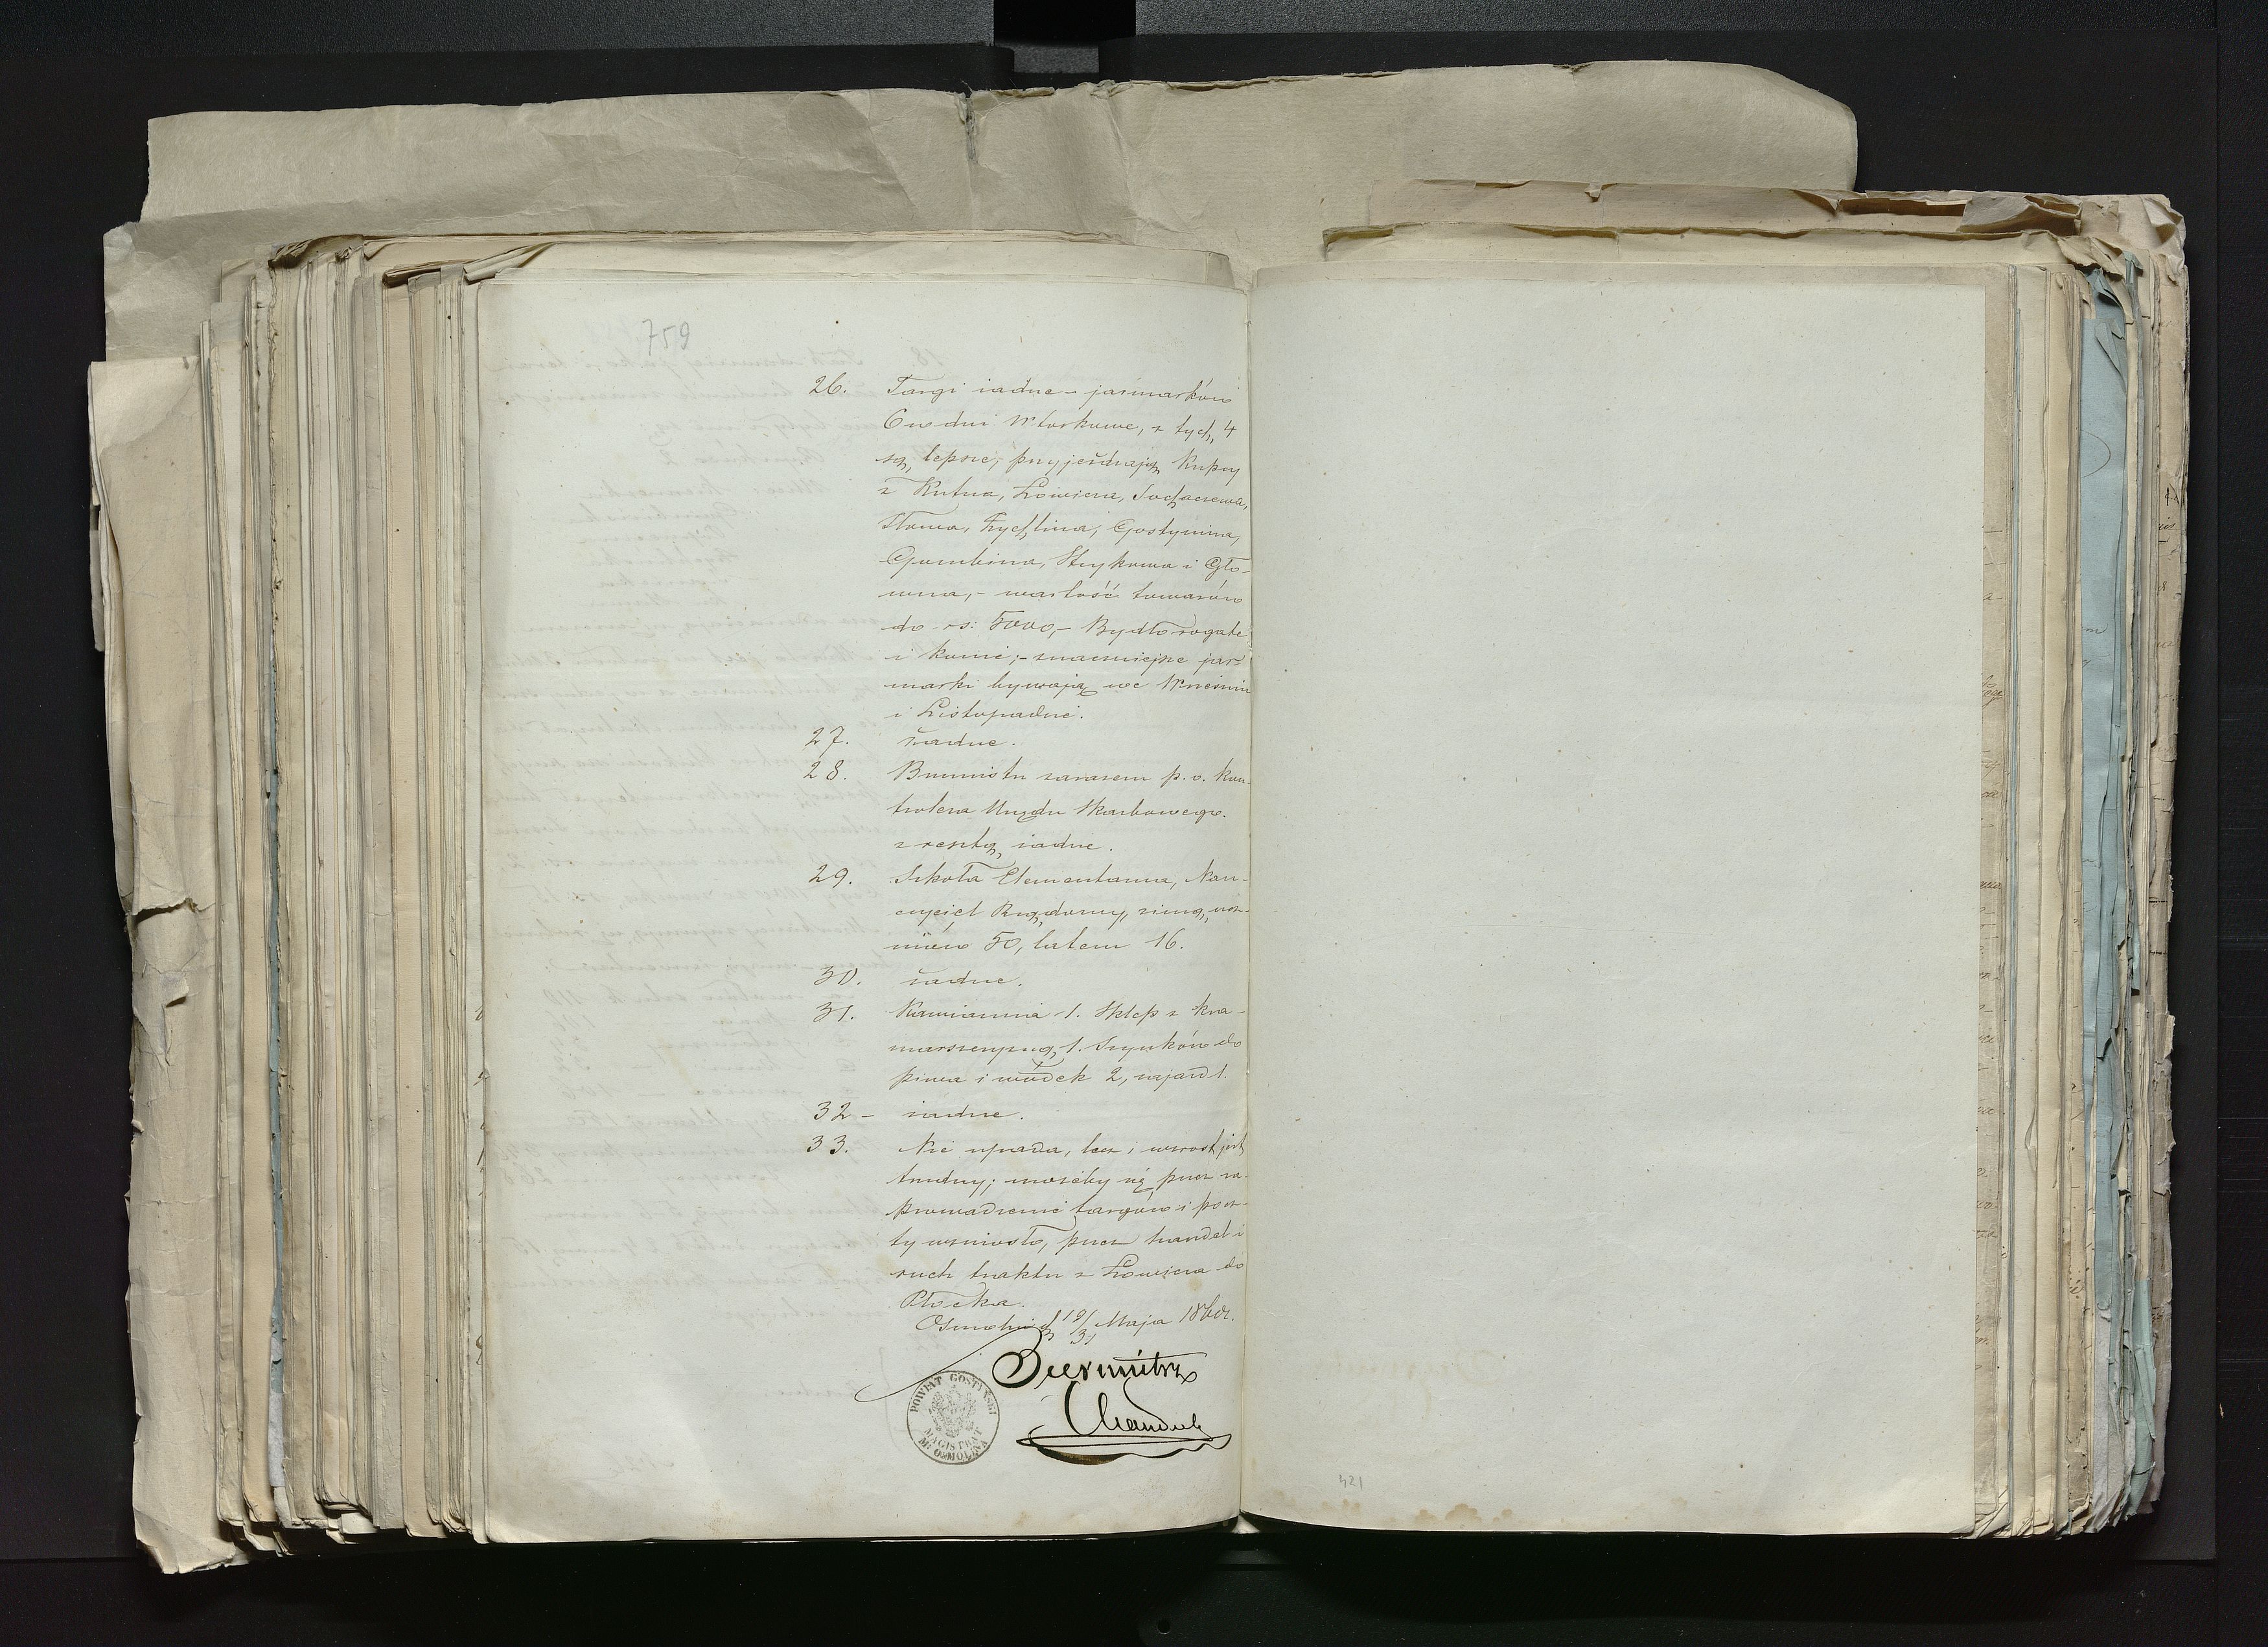 759
26. Targi żadne – jarmarków
6 we dni Wtorkowe, z tych 4
są lepsze, przyjeżdżają Kupcy
z Kutna, Łowicza, Sochaczewa,
Iłowa, Żychlina, Gostynina,
Gombina, Strykowa i Gło-
wna, – wartość towarów
do rs: 5000, – Bydło rogate
i konie; – znaczniejsze jar-
marki bywają we Wrześniu
i Listopadzie.
27. żadne.
28. Burmistrz zarazem p. o. kon-
trolera Urzędu Skarbowego.
z resztą żadne.
29. Szkoła Elementarna, Nau-
czyciel Rządowy, zimą ucz-
niów 50, latem 16.
30. żadne.
31. Kawiarnia 1. Sklep z kra-
marszczyzną 1. Szynków do
piwa i wódek 2, zajazd 1.
32 – żadne.
33. Nie upada, lecz i wzrost jest
trudny; możeby się przez za-
prowadzenie targów i pocz-
ty wzniosło, przez handel i
ruch traktu z Łowicza do
Płocka.
Osmolin d 19/31 Maja 1860r.
Burmistrz
POWIAT GOSTYŃSKI
MAGISTRAT
Mta OSMOLINA
421